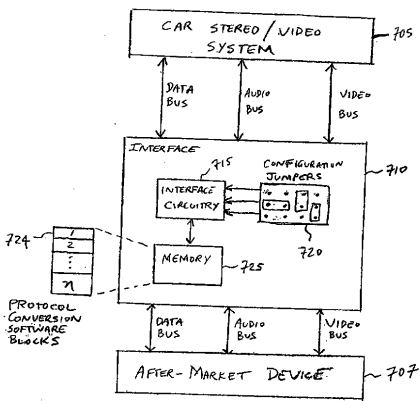 CAR STEREO/VIDEO
SYSTEM
705
DATA
BUS
AUDIO
BUS
VIDEO
BUS
INTERFACE
715
CONFIGURATION
JUMPERS
710
INTERFACE
CIRCUITRY
720
724
1
2
n
MEMORY
725
PROTOCOL
CONVERSION
SOFTWARE
BLOCKS
DATA
BUS
AUDIO
BUS
VIDEO
BUS
AFTER-MARKET DEVICE
707